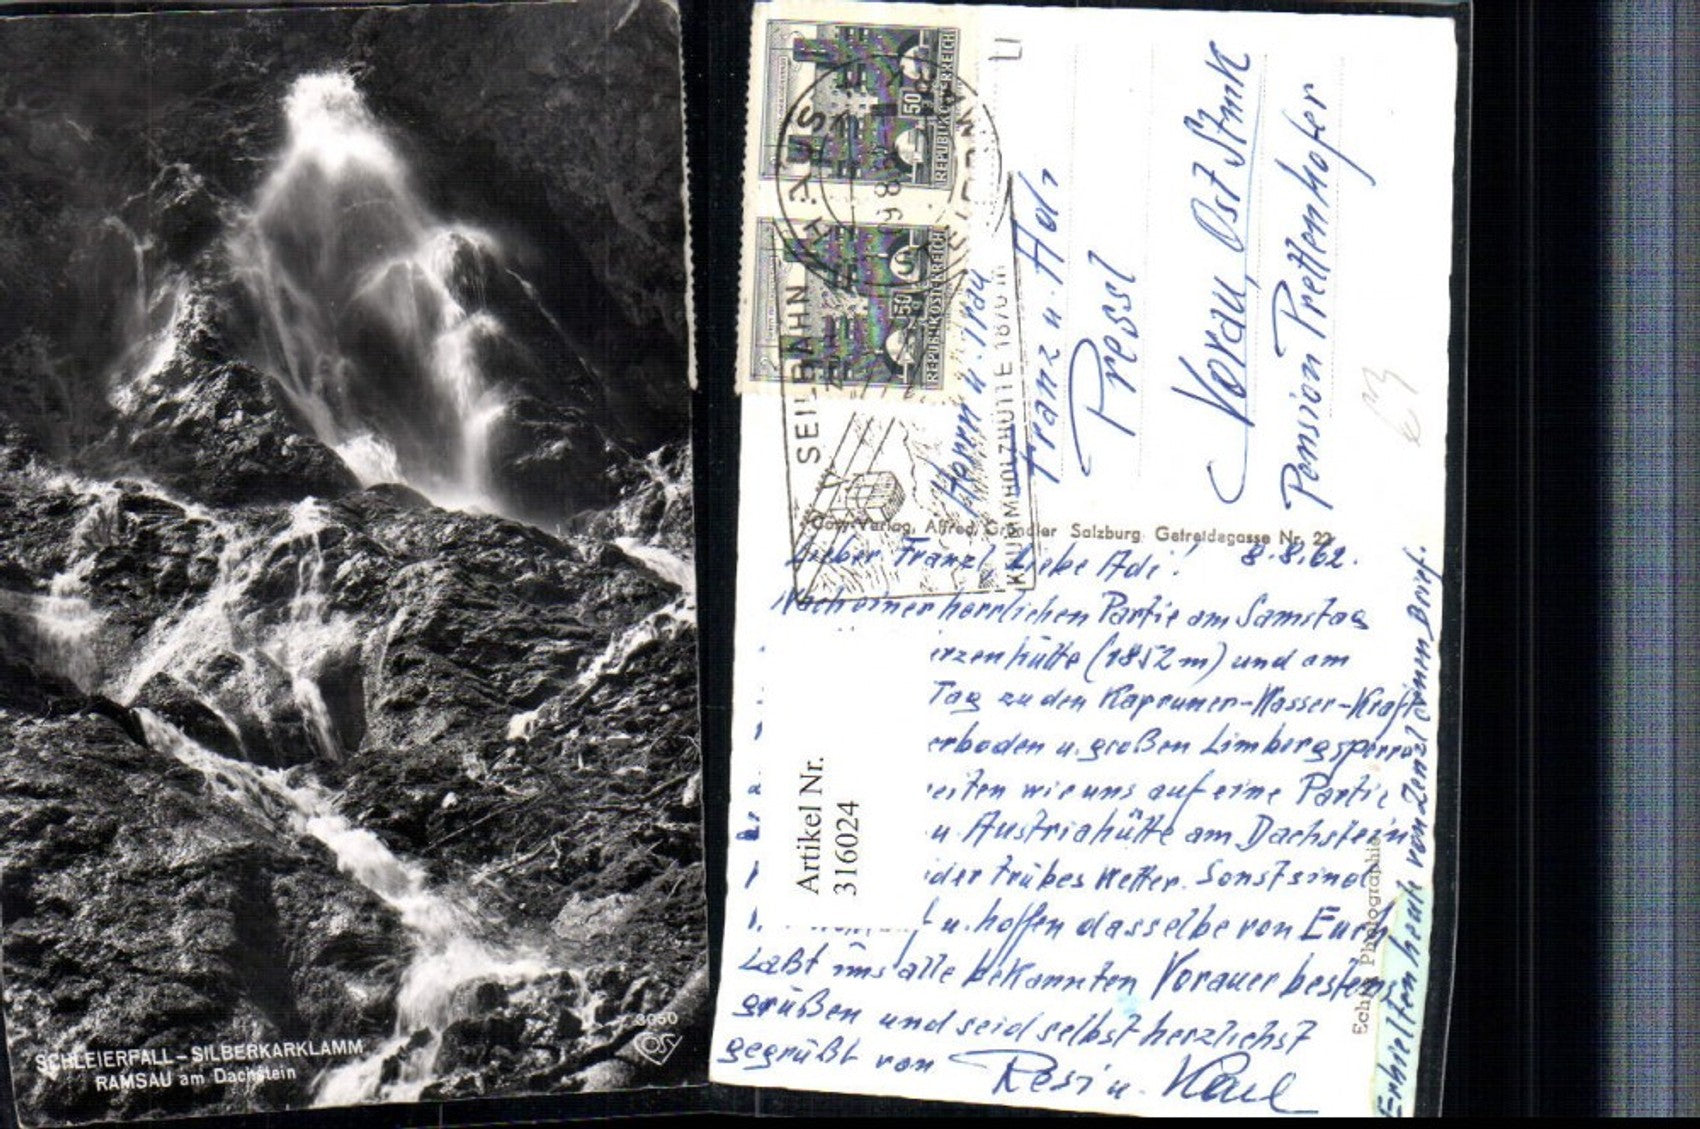 SCHLEIERFALL - SILBERKARKLAMM
RAMSAU am Dachstein
3050
REPUBLIK ÖSTERREICH
50
REPUBLIK ÖSTERREICH
50 S
HAUS
SEILBAHN
KRUMMHOLZHÜTTE 1870 m
Herrn u. Frau
Franz u. Adi
Pressl
Vorau, Ost Stmk
Pension Prettenhofer
Verlag, Alfred Gründler Salzburg Getreidegasse Nr. 22
Lieber Franzl, Liebe Adi! 8.8.62.
Nach einer herrlichen Partie am Samstag
irzenhütte (1852 m) und am
Tag zu den Kapruner-Wasser-Kraft
erboden u. großen Limbergsperre
eiten wir uns auf eine Partie
u. Austriahütte am Dachstein
ider trübes Wetter. Sonst sind
u. hoffen dasselbe von Euch
Laßt uns alle bekannten Vorauer bestens
grüßen und seid selbst herzlichst
gegrüßt von Resi u. Karl
Erhielten heute von Zenzl einen Brief.
Echte Photographie
Artikel Nr.
316024